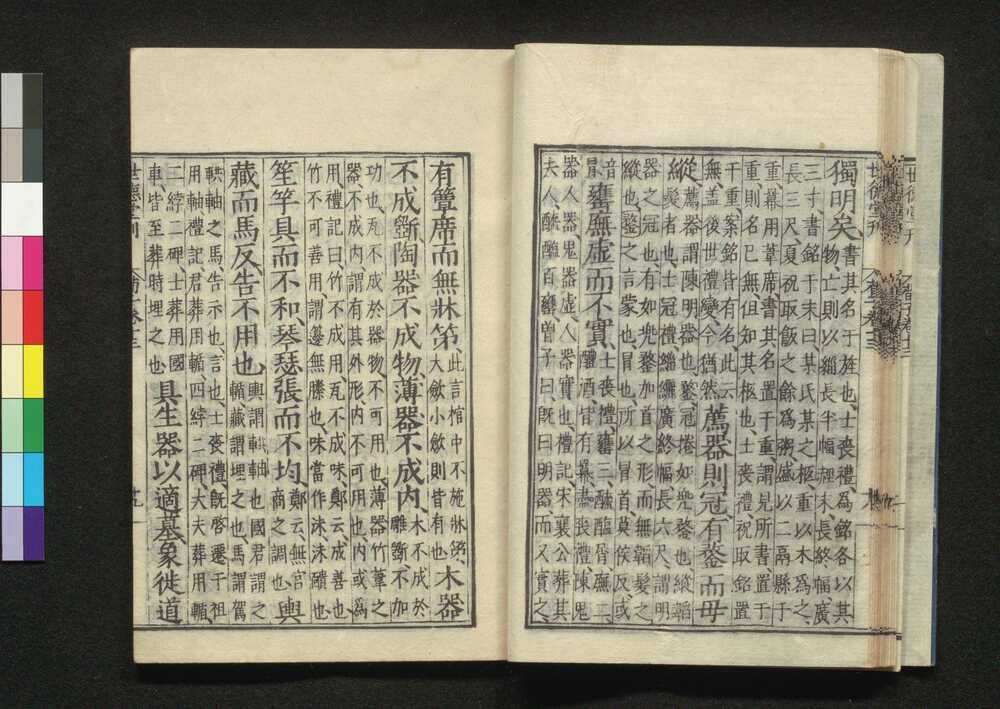 獨明矣、書其名于旌也、士喪禮為銘各以其
物、亡則以緇長半幅䞓末長終幅廣
三寸書銘于末曰某氏某之柩重以木為之、
長三尺夏祝取飯之餘為粥盛以二鬲縣于
重冪用葦席、書其名置于重、謂見所書置于
重、則名已無但知其柩也、士喪禮祝取銘置
于重案銘皆有名、此云
無、蓋後世禮變、今猶然
薦器則冠有鍪而毋
縰薦器謂陳明器也鍪冠捲如兜鍪也縰韜
髮者也、士冠禮緇纚廣終幅長六尺、謂明
器之冠也、有如兜鍪加首之形、而無韜髮之
縰也、鍪之言蒙也、冒也、所以冒首、莫侯反、或
音
冒
甕廡虛而不實、
士喪禮、甕三、醯醢屑、廡二、
醴酒、皆有冪、蓋喪禮陳鬼
器人器、鬼器虛、人器實也、禮記、宋襄公葬其
夫人、醯醢百甕、曾子曰、既曰明器、而又實之、
有簟席而無牀笫、此言棺中不施牀笫、
大斂小斂則皆有也、
木器
不成斲陶器不成物薄器不成内、木不成於
雕斲、不加
功也、瓦不成於器物、不可用也、薄器竹葦之
器、不成内謂有其外形内不可用也、内或為
用、禮記曰、竹不成用、瓦不成味、鄭云、成善也、
竹不可善用、謂邊無縢也、味當作沬、沬靧也、
笙竽具而不和、琴瑟張而不均、鄭云、無宮
商之調也、
輿
藏而馬反告不用也、輿謂輁軸也、國君謂之
輴、藏謂埋之也、馬謂駕
輁軸之馬、告示也、言也、士喪禮、既啓遷于祖
用軸、禮記君葬用輴四綍二碑、大夫葬用輴、
二綍二碑、士葬用國
車、皆至葬時埋之也、
具生器以適墓、象徙道
世德堂刊